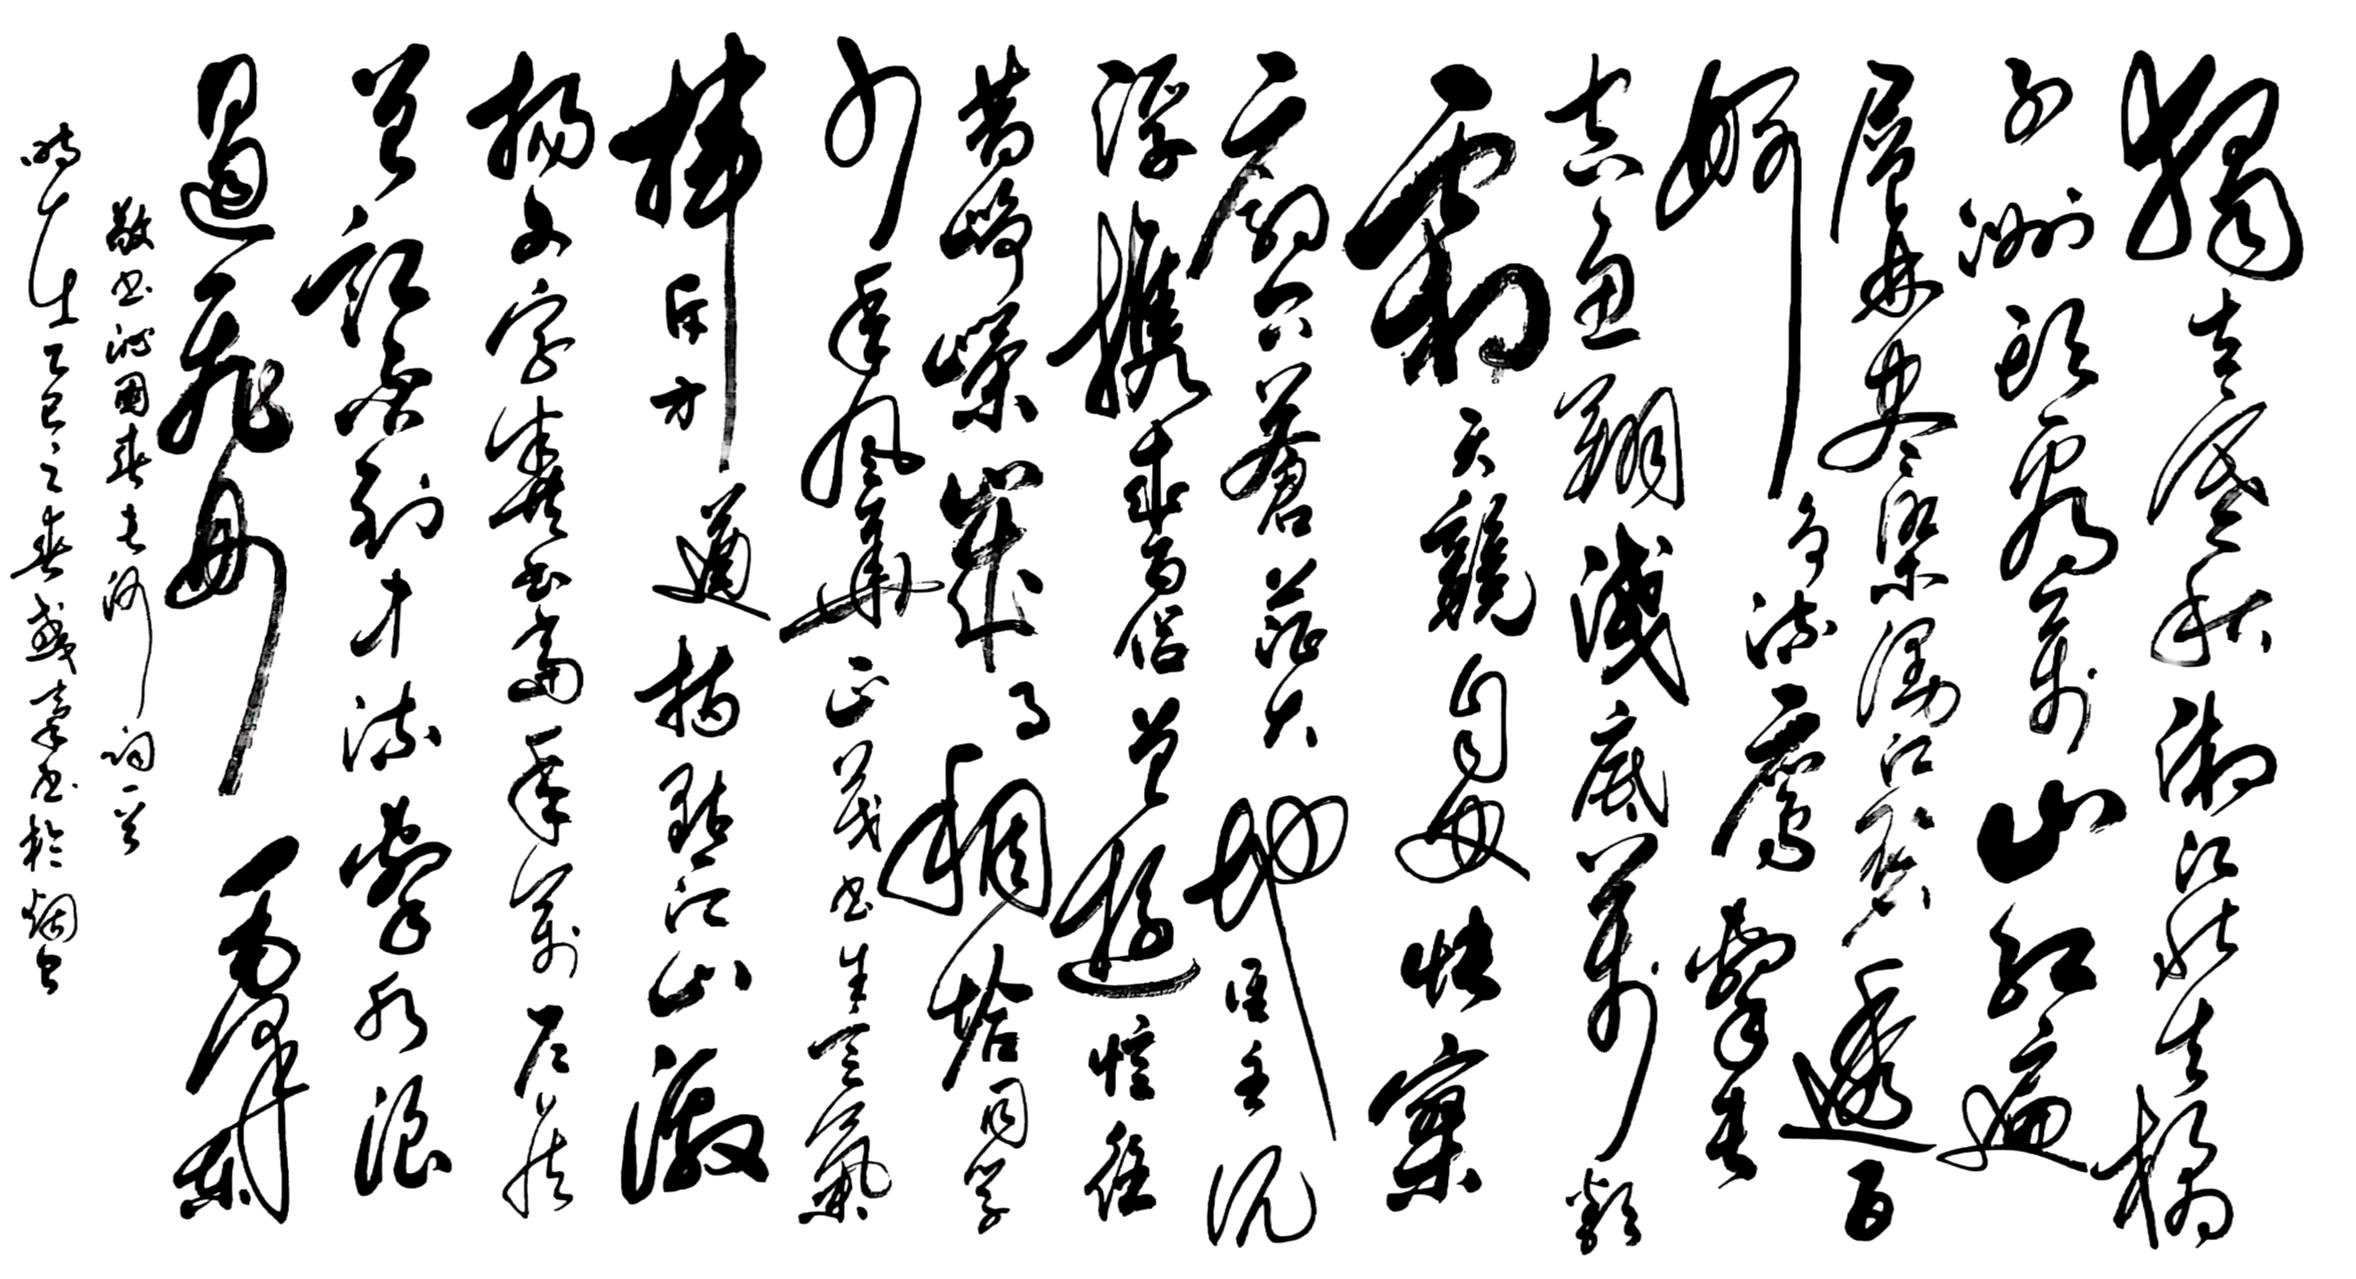 獨立寒秋湘江北去橘
子洲頭看萬山紅遍
層林盡染漫江碧透百
舸爭流鷹擊長
空魚翔淺底萬類
霜天競自由悵寥
廓問蒼茫大地誰主沉
浮攜來百侶曾遊憶往
昔崢嶸歲月稠恰同學
少年風華正茂書生意氣
揮斥方遒指點江山激
揚文字糞土當年萬戶侯
曾記否到中流擊水浪
遏飛舟 毛澤東
敬書沁園春長沙詞一首
時在乙巳之春 書於烟台